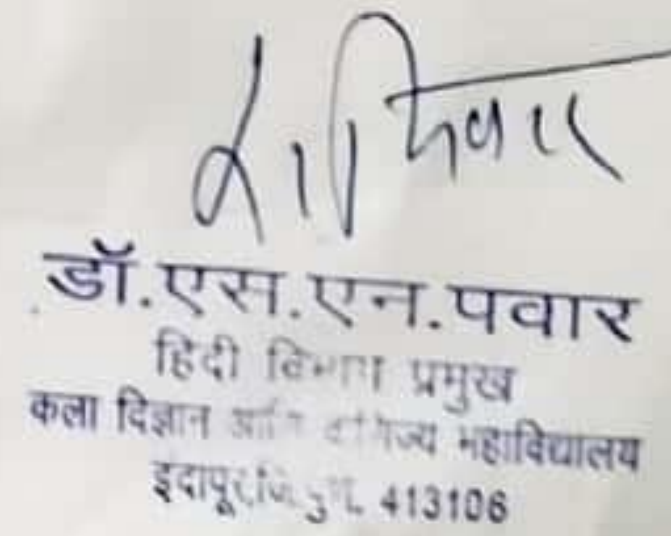 डॉ.एस.एन.पवार
हिंदी विभाग प्रमुख
कला विज्ञान आणि वाणिज्य महाविद्यालय
इंदापूर,जि.पुणे. 413106